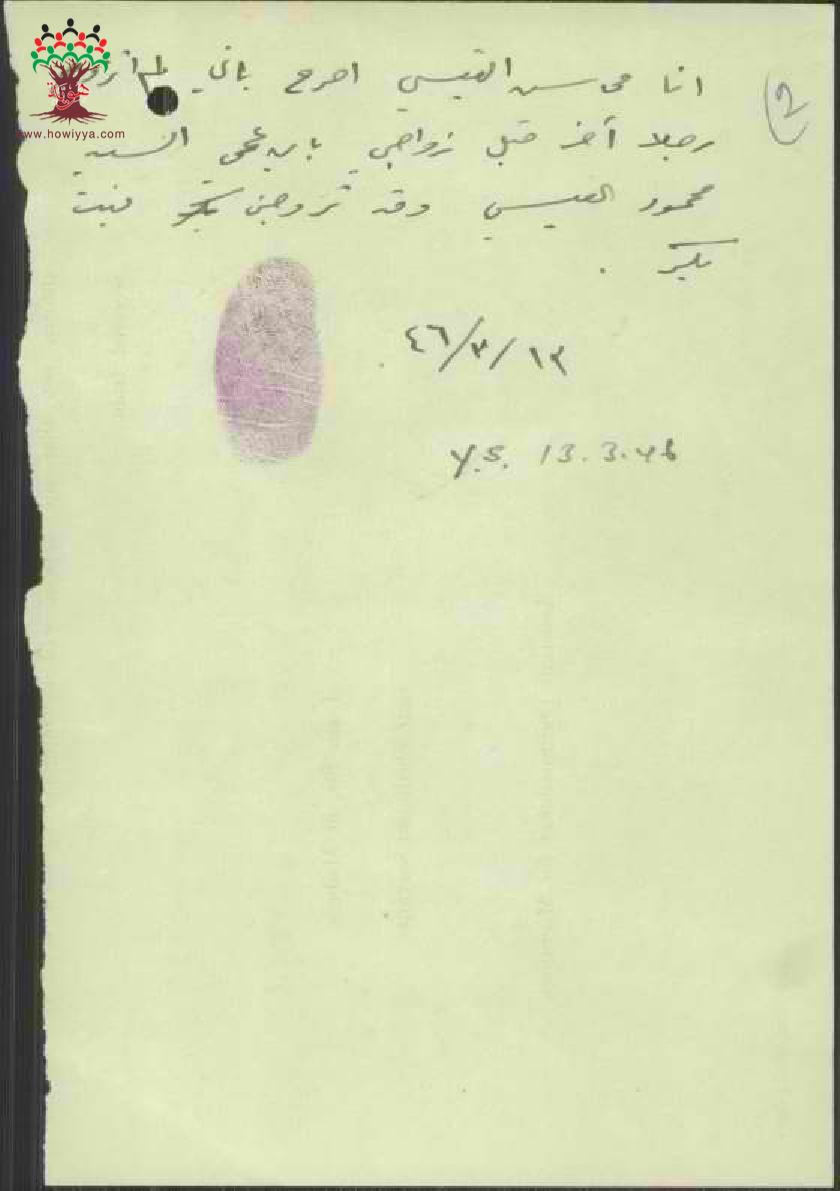 هوية
www.howiyya.com
2
انا محاسن القيسي اصرح باني لم أتزوج
رجلا آخر قبل زواجي بابن عمي السيد
محمود القيسي وقد تزوجني بنت
بكر .
١٣/٣/٤٦
Y.S. 13.3.46